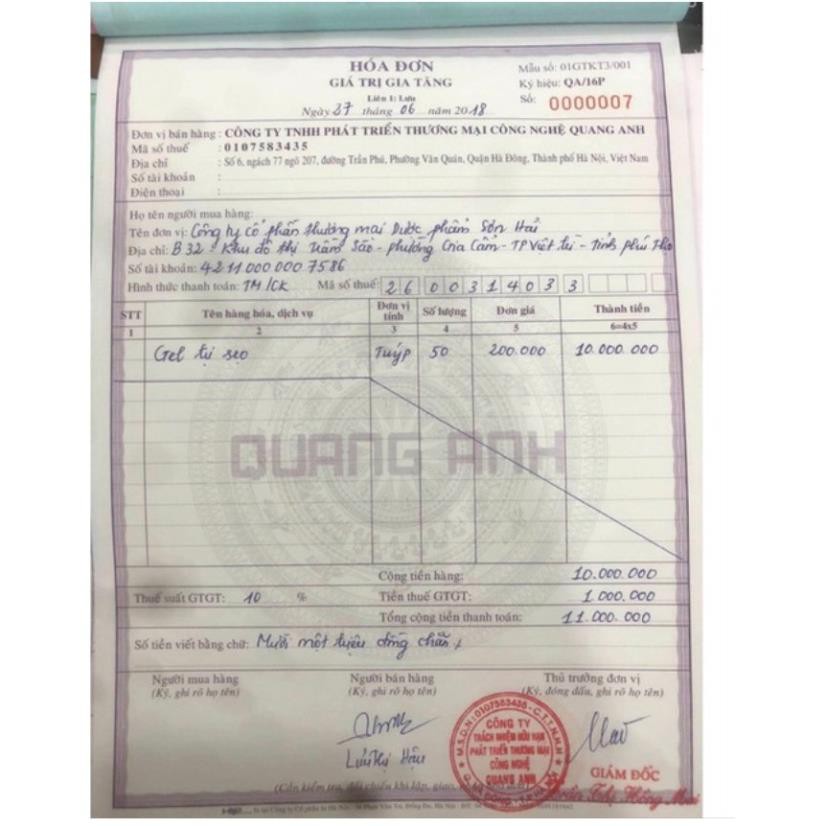 HÓA ĐƠN
GIÁ TRỊ GIA TĂNG
Liên 1: Lưu
Ngày 27 tháng 06 năm 2018
Mẫu số: 01GTKT3/001
Ký hiệu: QA/16P
Số: 0000007
Đơn vị bán hàng : CÔNG TY TNHH PHÁT TRIỂN THƯƠNG MẠI CÔNG NGHỆ QUANG ANH
Mã số thuế : 0107583435
Địa chỉ : Số 6, ngách 77 ngõ 207, đường Trần Phú, Phường Văn Quán, Quận Hà Đông, Thành phố Hà Nội, Việt Nam
Số tài khoản :
Điện thoại :
Họ tên người mua hàng:
Tên đơn vị: Công ty cổ phần thương mại Dược phẩm Sơn Hải
Địa chỉ: B32 - Khu đô thị Trầm Sào - phường Gia Cẩm - TP Việt Trì - Tỉnh Phú Thọ
Số tài khoản: 42110000007586
Hình thức thanh toán: TM/CK Mã số thuế: 2600314033
STT Tên hàng hóa, dịch vụ Đơn vị tính Số lượng Đơn giá Thành tiền
1 2 3 4 5 6=4x5
Gel trị sẹo Tuýp 50 200.000 10.000.000
QUANG ANH
Cộng tiền hàng: 10.000.000
Thuế suất GTGT: 10 % Tiền thuế GTGT: 1.000.000
Tổng cộng tiền thanh toán: 11.000.000
Số tiền viết bằng chữ: Mười một triệu đồng chẵn
Người mua hàng Người bán hàng Thủ trưởng đơn vị
(Ký, ghi rõ họ tên) (Ký, ghi rõ họ tên) (Ký, đóng dấu, ghi rõ họ tên)
M.S.D.N: 0107583435 - C.T.T.N.H.H
CÔNG TY
TRÁCH NHIỆM HỮU HẠN
PHÁT TRIỂN THƯƠNG MẠI
CÔNG NGHỆ
QUANG ANH
Lưu Thị Hậu
GIÁM ĐỐC
Thị Hồng Mai
(Cần kiểm tra, đối chiếu khi lập, giao,